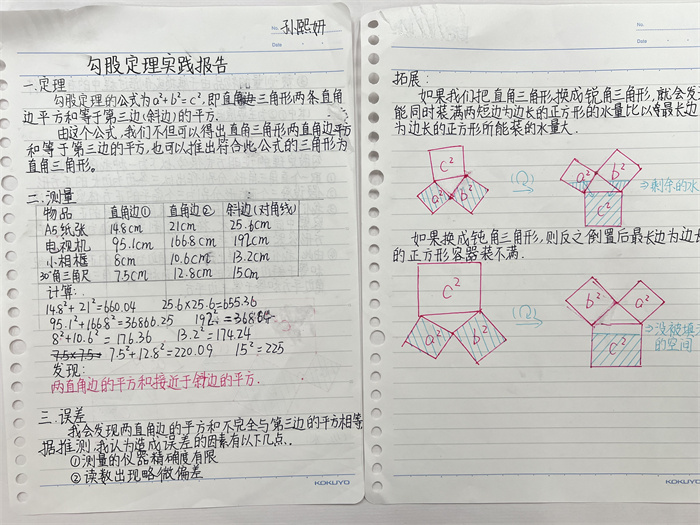 No.
孙熙妍
Date
勾股定理实践报告
一.定理
勾股定理的公式为a²+b²=c²,即直角边三角形两条直角
边平方和等于第三边(斜边)的平方.
由这个公式,我们不但可以得出直角三角形两直角边平方
和等于第三边的平方,也可以推出符合此公式的三角形为
直角三角形。
二.测量
物品 直角边① 直角边② 斜边(对角线)
A5纸张 14.8cm 21cm 25.6cm
电视机 95.1cm 166.8cm 192cm
小相框 8cm 10.6cm 13.2cm
30°角三角尺 7.5cm 12.8cm 15cm
计算:
14.8²+21²=660.04 25.6×25.6=655.36
95.1²+166.8²=36866.25 192²=36864
8²+10.6²=176.36 13.2²=174.24
7.5×7.5 7.5²+12.8²=220.09 15²=225
发现:
两直角边的平方和接近于斜边的平方.
三.误差
我会发现两直角边的平方和不完全与第三边的平方相等
据推测,我认为造成误差的因素有以下几点..
①测量的仪器精确度有限
②读数出现略微偏差
KOKUYO
No.
Date
拓展:
如果我们把直角三角形换成锐角三角形,就会发
能同时装满两短边为边长的正方形的水量比以最长
为边长的正方形所能装的水量大.
c²
a² b²
a² b²
c²
⇒剩余的水
如果换成钝角三角形,则反之倒置后最长边为边长
的正方形容器装不满.
c²
a² b²
b² a²
c²
⇒没被填
的空间
KOKUYO